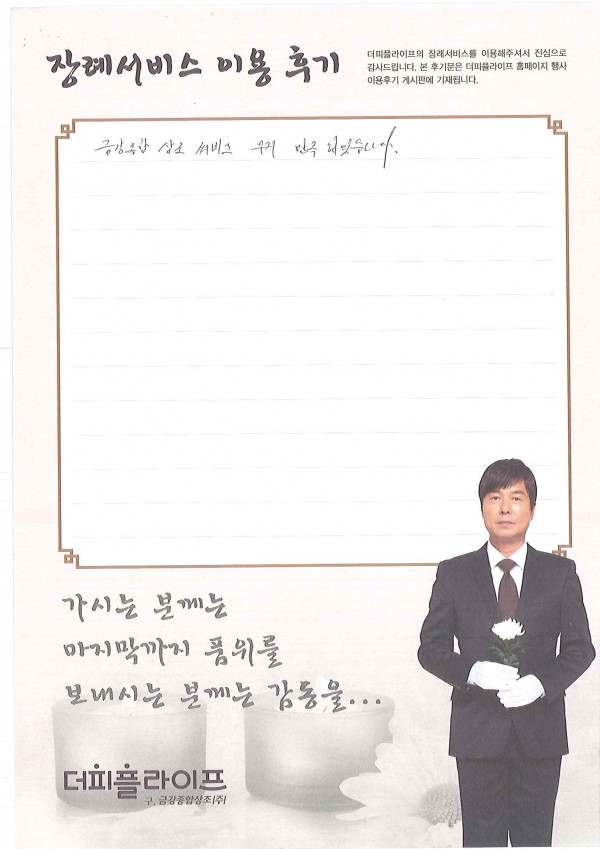 장례서비스 이용 후기
더피플라이프의 장례서비스를 이용해주셔서 진심으로
감사드립니다. 본 후기문은 더피플라이프 홈페이지 행사
이용후기 게시판에 기재됩니다.
금강종합 상조 써비스 만족 하였습니다.
가시는 분께는
마지막까지 품위를
보내시는 분께는 감동을...
더피플라이프
구. 금강종합상조(주)